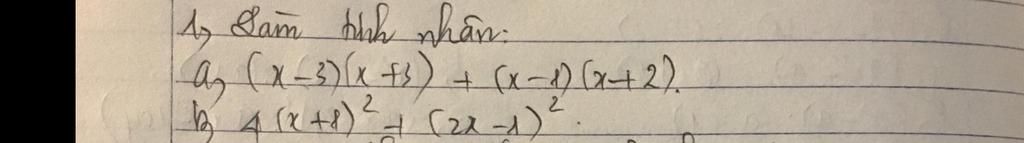 1, Làm tính nhân:
a, (x-3)(x+3) + (x-1)(x+2).
b, 4(x+1)² + (2x-1)².